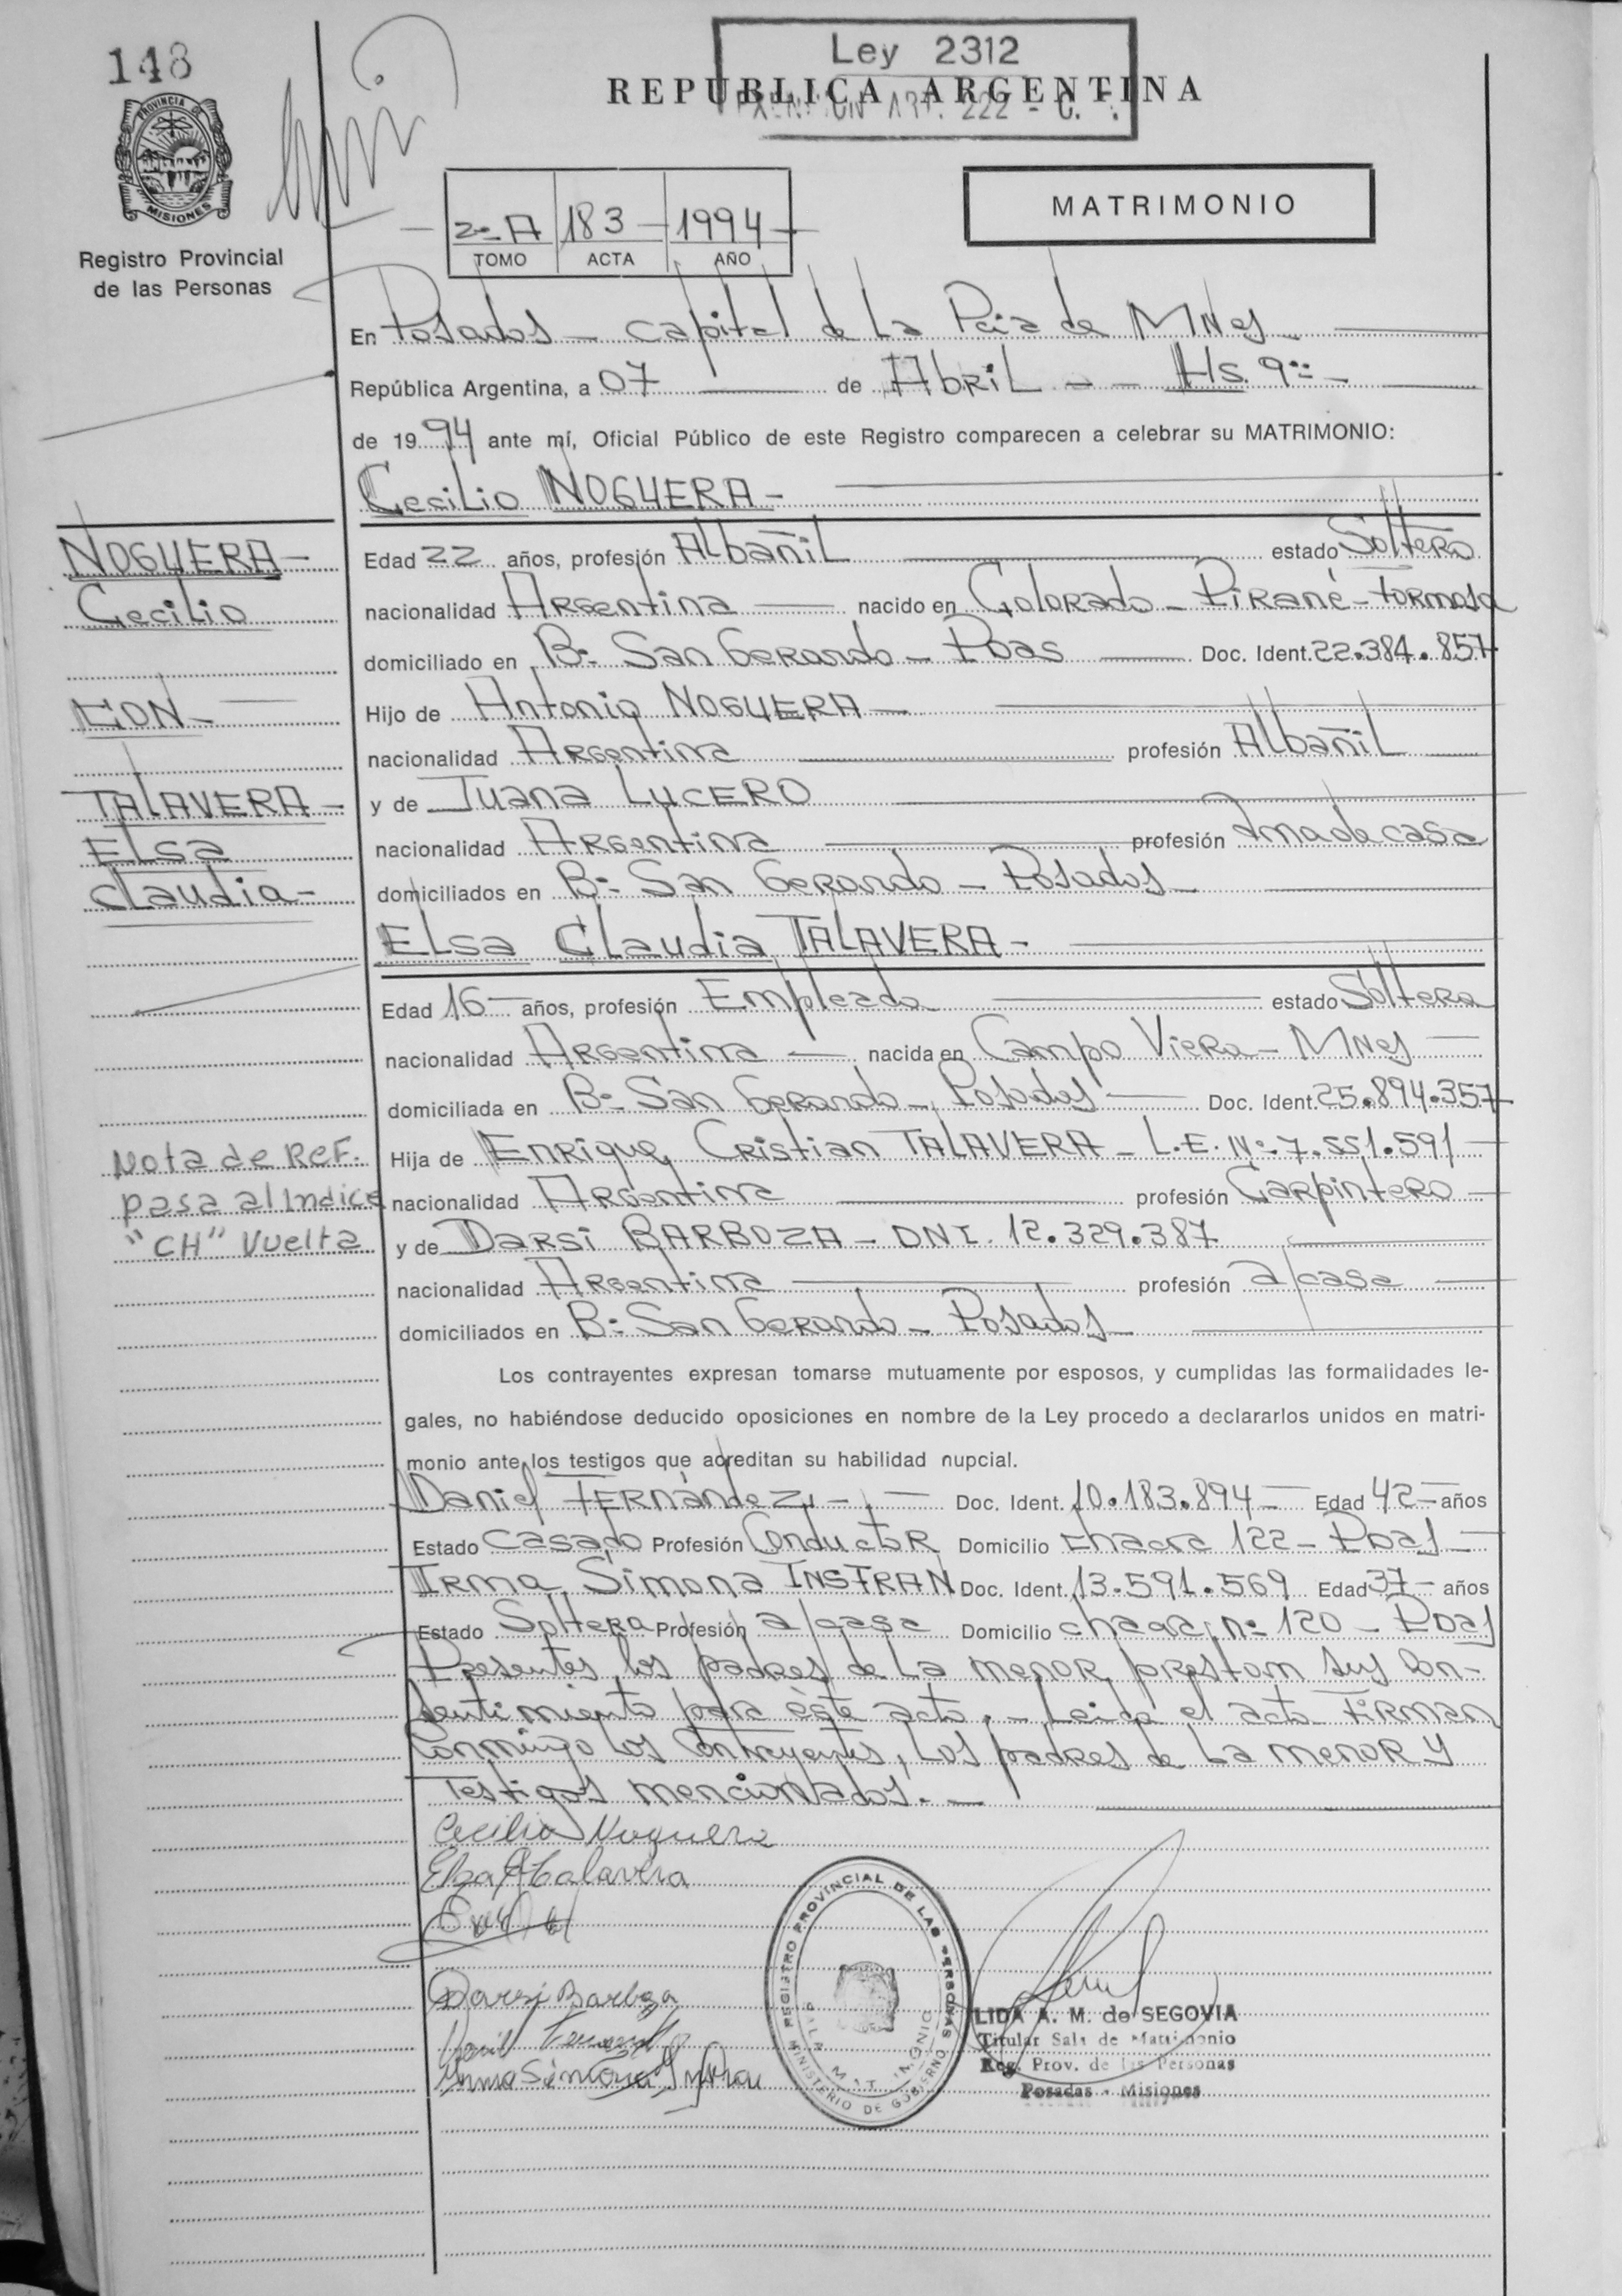 148
Ley 2312
REPUBLICA ARGENTINA
ART. 222 - C.
PROVINCIA DE
MISIONES
Registro Provincial
de las Personas
2º A 183 - 1994 -
TOMO ACTA AÑO
MATRIMONIO
En Posadas - capital de La Pcia de MNes
República Argentina, a 07 de Abril - - Hs. 9
de 1994 ante mí, Oficial Público de este Registro comparecen a celebrar su MATRIMONIO:
Cecilio NOGUERA -
NOGUERA -
Cecilio
CON -
TALAVERA -
Elsa
Claudia -
Edad 22 años, profesión Albañil estado Soltero
nacionalidad Argentina nacido en Colorado - Pirané - Formosa
domiciliado en Bº San Gerardo - Pdas Doc. Ident. 22.384.857
Hijo de Antonio NOGUERA -
nacionalidad Argentina profesión Albañil
y de Juana LUCERO
nacionalidad Argentina profesión Ama de casa
domiciliados en Bº San Gerardo - Posadas -
Elsa Claudia TALAVERA -
Edad 16 - años, profesión Empleada estado Soltera
nacionalidad Argentina - nacida en Campo Viera - MNes -
domiciliada en Bº San Gerardo - Posadas - Doc. Ident. 25.894.357
Hija de Enrique Cristian TALAVERA - L.E. Nº 7.551.591
nacionalidad Argentina profesión Carpintero
y de Darsi BARBOZA - DNI. 12.329.387
nacionalidad Argentina profesión a/casa
domiciliados en Bº San Gerardo - Posadas -
Nota de Ref.
pasa al Indice
"CH" Vuelta
Los contrayentes expresan tomarse mutuamente por esposos, y cumplidas las formalidades le-
gales, no habiéndose deducido oposiciones en nombre de la Ley procedo a declararlos unidos en matri-
monio ante los testigos que acreditan su habilidad nupcial.
Daniel FERNàNdez, - Doc. Ident. 10.183.894 - Edad 42 - años
Estado Casado Profesión Conductor Domicilio chacra 122 - Pdas -
Irma Simona INSFRAN Doc. Ident. 13.591.569 Edad 37 - años
Estado Soltera Profesión a/casa Domicilio chacra nº 120 - Pdas
Presentes los padres de la menor prestan sus con-
sentimiento para èste acto. - Leida el acta Firman
conmigo los contrayentes, los padres de la menor y
testigos mencionados. -
Cecilio Noguera
Elsa C Talavera
Darsi Barboza
Irma Simona Insfran
REGISTRO PROVINCIAL DE LAS PERSONAS
MINISTERIO DE GOBIERNO
LIDA A. M. de SEGOVIA
Titular Sala de Matrimonio
Reg. Prov. de las Personas
Posadas - Misiones